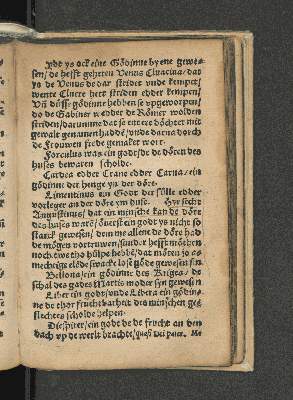 ydt ys ock eine Gödinne by ene gewe-
sen/ de hefft geheten Venus Cluacina/ dat
ys de Venus de dar stridet vnde kempet/
wente Cluere heet striden edder kempen/
Vñ düsse gödinne hebben se vpgeworpen/
do de Sabiner wedder de Römer wolden
striden/ darumme dat se en ere döchter mit
gewalt genamen hadde/ vnde darna dorch
de Frouwen frede gemaket wort.
Forculus was ein godt/ de de dören des
huses bewaren scholde.
Cardea edder Crane edder Carna/ ein
gödinne der henge yn der döre.
Limentinus ein Godt der sülle edder
vorleger an der döre ym huse. Hyr secht
Augustinus/ dat ein minsche kan de döre
des huses waren/ överst ein godt ys nicht so
starck gewesen/ dem me allene de döre had
de mögen vortruwen/ sunder hefft möthen
noch twe tho hülpe hebben/ dat mören jo
mecheige elöde swacke lose göde gewesen sin.
Bellona/ ein gödinne des Kriges/ de
schal des gades Martis moder syn gewesen
Liber ein godt/ vnde Libera ein gödin-
ne de ehar fruchtbarheit des minschen ges-
slechtes scholde helpen.
Diespiter/ ein godt de de frucht an den
dach vp de werlt brachte/ quasi diei pater. Me